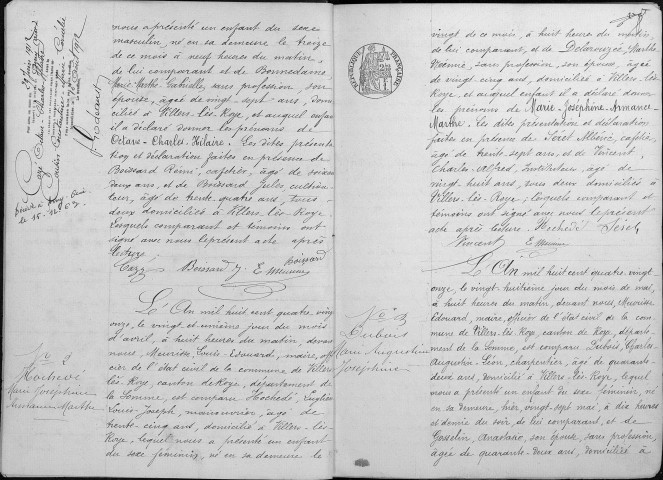 nous a présenté un enfant du sexe
masculin, né en sa demeure le treize
de ce mois à neuf heures du matin,
de lui comparant et de Bonnedame
Marie Marthe Gabrielle, sans profession, son
épouse, âgée de vingt sept ans, domi-
ciliés à Villers-lès-Roye, et auquel enfant
il a déclaré donner les prénoms de
Octave-Charles-Hilaire. Les dites présenta-
tion et déclaration faites en présence de
Boissard Rémi, cafetier, âgé de soixante
deux ans, et de Boissard Jules cultiva-
teur, âgé de trente quatre ans, tous
deux domiciliés à Villers-lès-Roye.
Lesquels comparant et témoins ont
signé avec nous le présent acte après
lecture.
Boissard J. E Meurisse Boissard
N° 2
Hochedé
Marie Joséphine
Armance Marthe
L'An mil huit cent quatre vingt
onze, le vingt et unième jour du mois
d'avril, à huit heures du matin, devant
nous, Meurisse, Louis-Edouard, maire, offi-
cier de l'état civil de la commune de Villers
lès-Roye canton de Roye, département de
la Somme, est comparu Hochedé,
Louis-Joseph, manouvrier, âgé de
trente-cinq ans, domicilié à Villers-lès-
Roye, lequel nous a présenté un enfant
du sexe féminin, né en sa demeure le
RÉPUBLIQUE FRANÇAISE
vingt de ce mois, à huit heures du matin,
de lui comparant, et de Delarouzée, Marthe
Noémie, sans profession, son épouse, âgée
de vingt cinq ans, domiciliés à Villers-lès-
Roye, et auquel enfant il a déclaré donner
les prénoms de Marie-Joséphine-Armance-
Marthe. Les dites présentation et déclaration
faites en présence de Seret Albéric, cafetier,
âgé de trente sept ans, et de Vincent,
Charles-Alfred, Instituteur, âgé de
vingt huit ans, tous deux domiciliés à
Villers-lès-Roye; lesquels comparant et
témoins ont signé avec nous le présent
acte après lecture. Hochedé Seret
Vincent E Meurisse
N° 3
Dubois
Marie Augustine
Joséphine
L'An mil huit cent quatre-vingt
onze, le vingt-huitième jour du mois d'avril,
à huit heures du matin, devant nous, Meurisse
Edouard, maire, officier de l'état civil de la com-
mune de Villers-lès-Roye, canton de Roye, départe-
ment de la Somme, est comparu Dubois, Charles-
Augustin-Léon, charpentier, âgé de quarante-
deux ans, domicilié à Villers-lès-Roye, lequel
nous a présenté un enfant du sexe féminin, né
en sa demeure, hier vingt-sept mai, à dix heures
et demie du soir, de lui comparant, et de
Gosselin, Anastasie, son épouse, sans profession,
âgée de quarante-deux ans, domiciliés à